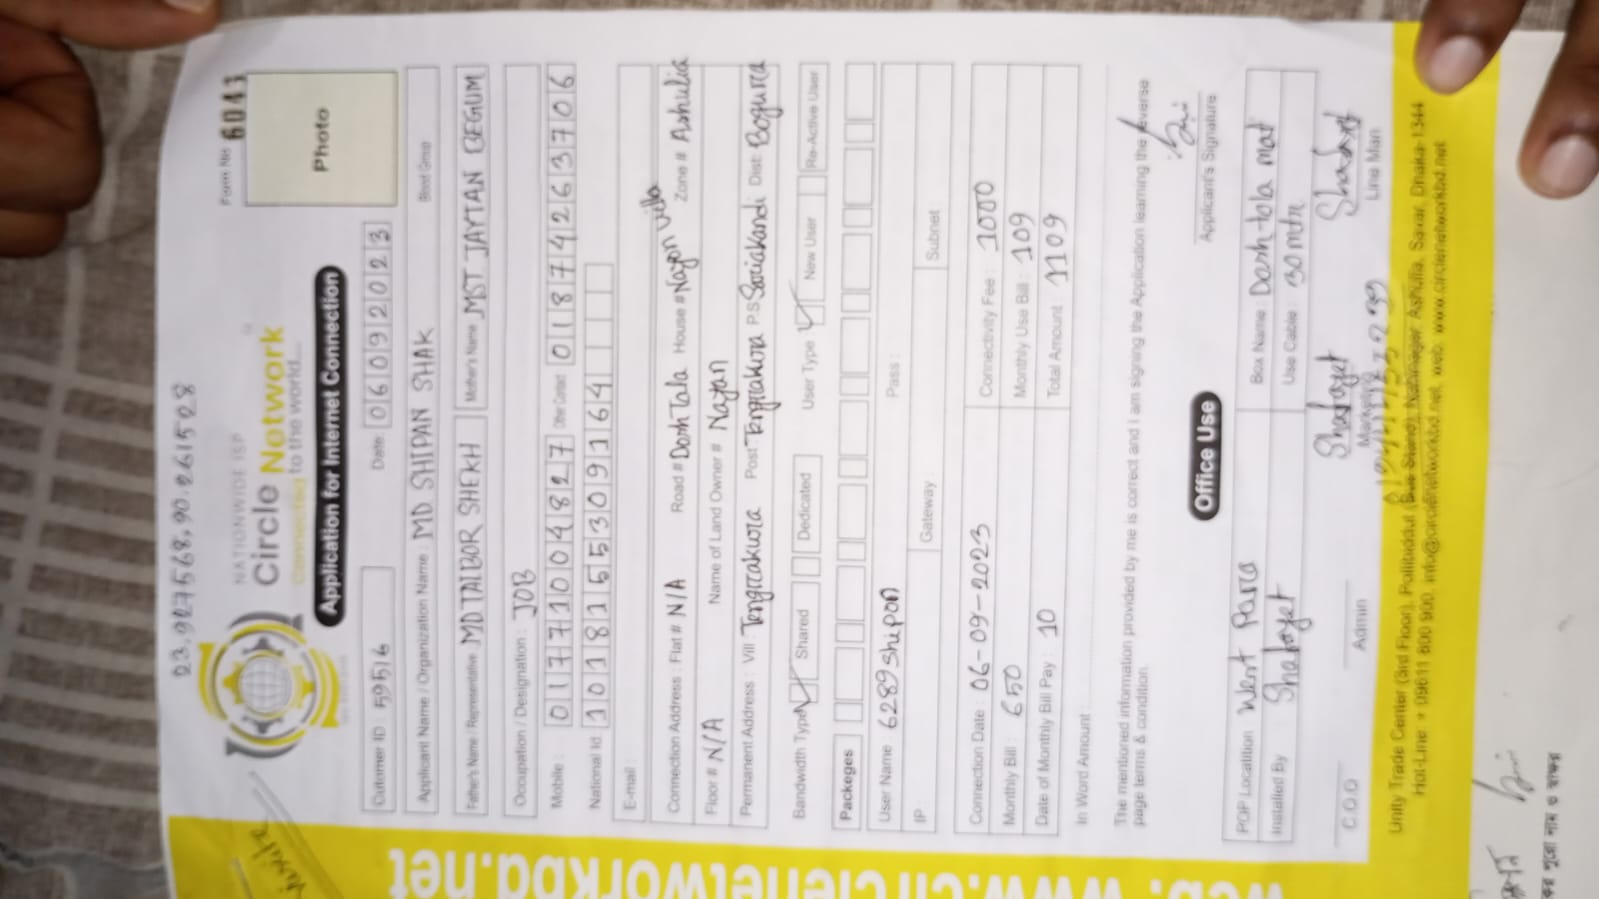 23.907568,90.261508
NATIONWIDE ISP
Circle Network
Connected to the world...
Form No: 6041
Photo
Application for Internet Connection
Cutomer ID : 59516
Date: 06092023
Applicant Name / Organization Name : MD SHIPAN SHAK
Blood Group
Father's Name / Representative MD TAIBOR SHEKH
Mother's Name MST JAYTAN BEGUM
Occupation / Designation : JOB
Mobile: 01771004827 Other Contact 01874263706
National Id 1018155309164
E-mail:
Connection Address : Flat # N/A Road # Dorh Tala House # Nayon Villa Zone # Ashulia
Floor # N/A Name of Land Owner # Nayan
Permanent Address : Vill : Tengrakura Post Tengrakura P.S Sariakandi Dist: Bogura
Bandwidth Type Shared Dedicated User Type New User Re-Active User
Packeges
User Name : 6289shipon Pass :
IP : Gateway : Subnet
Connection Date : 06-09-2023 Connectivity Fee : 1000
Monthly Bill : 650 Monthly Use Bill : 109
Date of Monthly Bill Pay : 10 Total Amount : 1109
In Word Amount :
The mentioned information provided by me is correct and I am signing the Application learning the reverse
page terms & condition.
Applicant's Signature
Office Use
POP Location West Para Box Name : Dorh tola mat
Installed By Shafayet Use Cable : 30 mtr
Shafayet
C.O.O Admin Marketing Line Man
Unity Trade Center (3rd Floor), Pollibiddut (Bus Stand), Nobinagar, Ashulia, Savar, Dhaka-1344
Hot-Line # 09611 800 900, info@circlenetworkbd.net, web: www.circlenetworkbd.net
web: www.circlenetworkbd.net